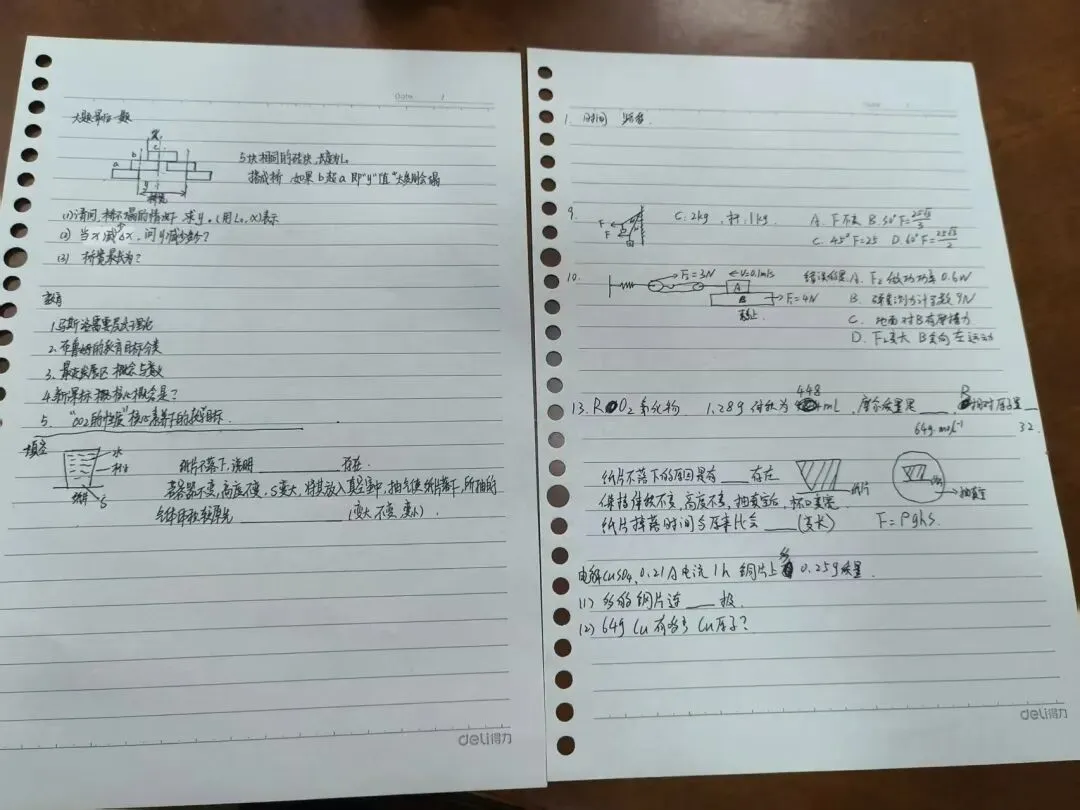 大题最后一题
x
c
b
a
y
桥宽
5块相同的砖块,长度为L。
搭成桥,如果b超a即"y"值"太大则会塌
(1)请问,桥不塌的情况下 求y。(用L。,x)表示
(2) 当x减△x,问y减少多少?
(3) 桥宽最大为?
教育
1.马斯洛需要层次理论
2.布鲁姆的教育目标分类
3.最近发展区 概念与意义
4.新课标 核心概念是?
5. "CO2的性质"核心素养下的教学目标.
填空
水
杯子
纸片 S
纸片不落下,说明____存在.
若容器不变,高度不变,S变大,将其放入真空室中,抽气使纸片落下,所抽的
气体体积较原先____(变大 不变 变小).
deli得力
Date /
1. 时间 频率.
9.
F
F
C.2kg,杆:1kg. A. F不变 B.30°F=25√3/3
C. 45°F=25 D.60°F=25√3/2
10.
F2=3N ←V=0.1m/s
A
B
F1=4N
静止
错误的是 A. F2做功功率0.6W
B. 弹簧测力计示数9N
C. 地面对B有摩擦力
D. F2变大 B变向左运动
448
13. RO2 氧化物 1.28g 体积为 mL,摩尔质量是____,R相对原子量__
64g·mol⁻¹ 32.
纸片不落下的原因是有___存在
纸片
抽真空
保持体积不变,高度不变,抽真空后,杯口变宽
纸片掉落时间与原来比会___(变长)
F=ρghs.
电解CuSO4,0.21A电流1h 铜片上多0.25g质量.
(1) 多的铜片连___极.
(2) 64g Cu有多少Cu原子?
deli得力